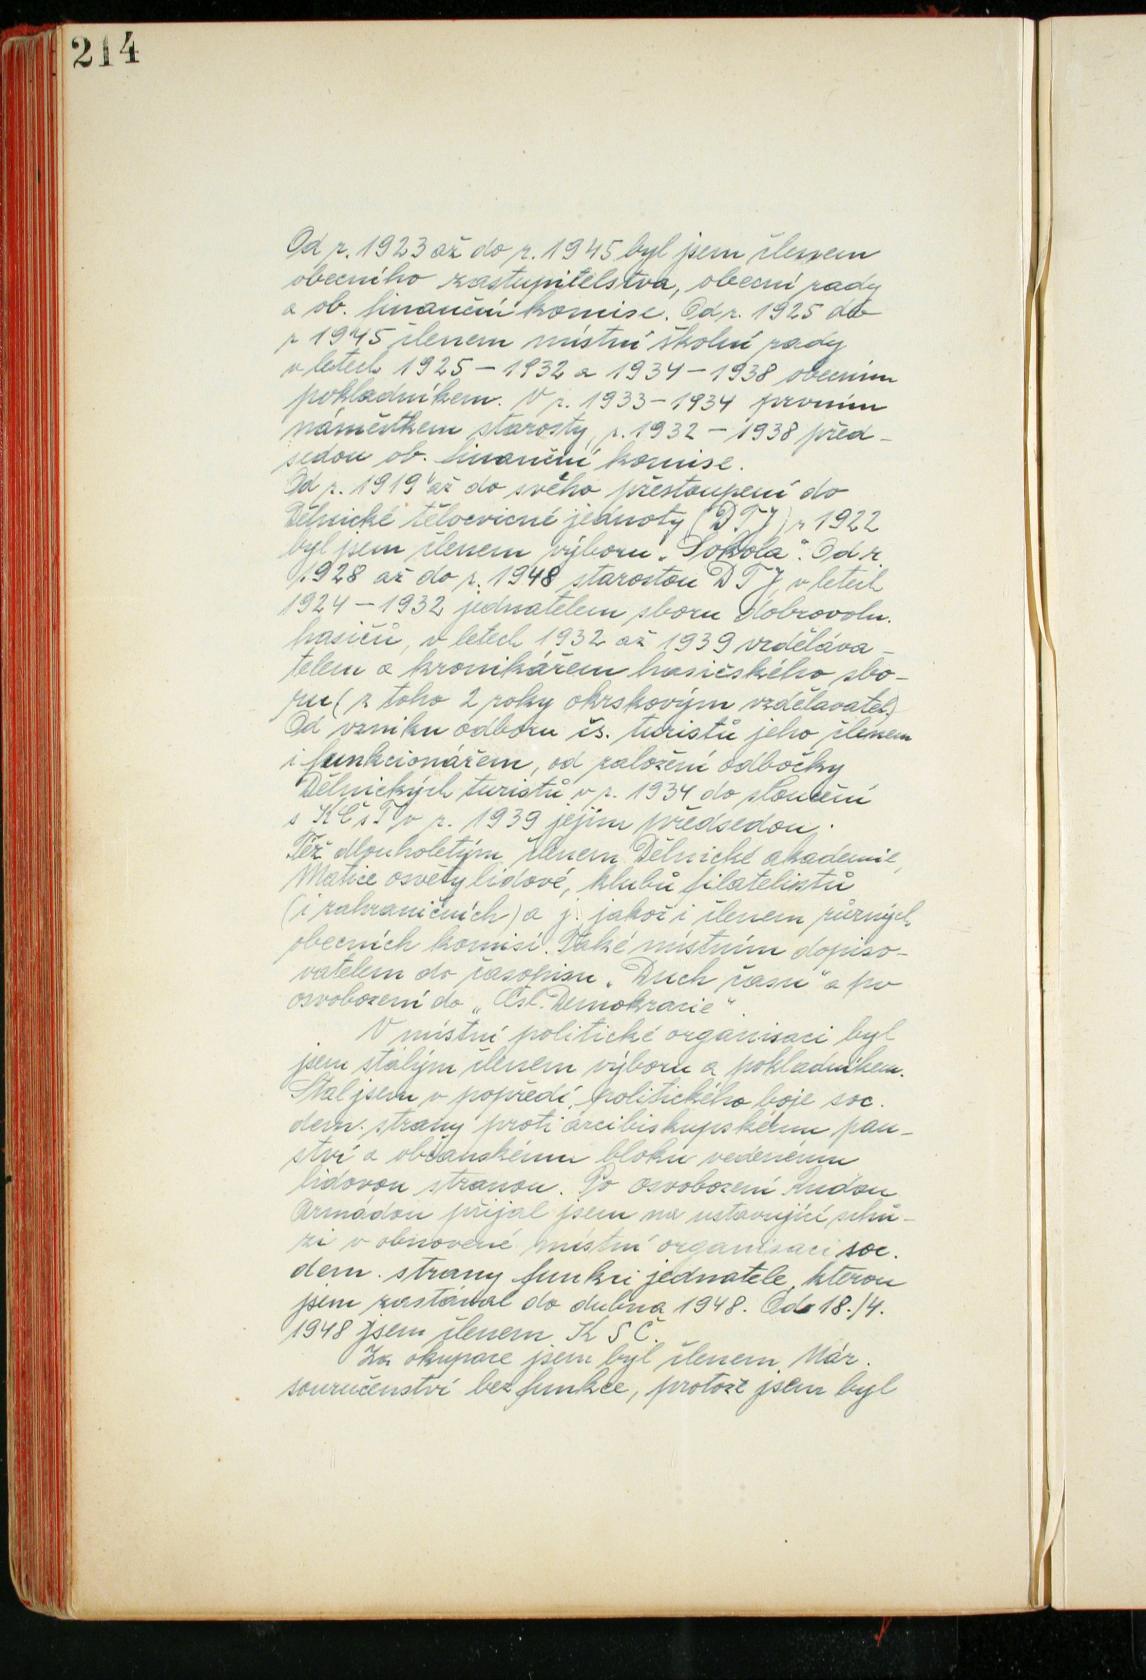 214
Od r. 1923 až do r. 1945 byl jsem členem
obecního zastupitelstva, obecní rady
a ob. finanční komise. Od r. 1925 do
r 1945 členem místní školní rady
v letech 1925 – 1932 a 1934 – 1938 obecním
pokladníkem. V r. 1933 – 1934 prvním
náměstkem starosty, r. 1932 – 1938 před-
sedou ob. finanční komise.
Od r. 1919 až do svého přestoupení do
Dělnické tělocvičné jednoty (DTJ) r 1922
byl jsem členem výboru „Sokola“. Od r.
1928 až do r. 1948 starostou DTJ, v letech
1924 – 1932 jednatelem sboru dobrovoln.
hasičů, v letech 1932 až 1939 vzděláva-
telem a kronikářem hasičského sbo-
ru (z toho 2 roky okrskovým vzdělavatel.)
Od vzniku odboru čs. turistů jeho členem
i funkcionářem, od založení odbočky
Dělnických turistů v r. 1934 do sloučení
s KČsT, v r. 1939 jejím předsedou.
Též dlouholetým členem Dělnické akademie,
Matice osvěty lidové, klubů filatelistů
(i zahraničních) a j. jakož i členem různých
obecních komisí. Také místním dopiso-
vatelem do časopisu „Duch času“ a po
osvobození do „Čsl. Demokracie“.
V místní politické organisaci byl
jsem stálým členem výboru a pokladníkem.
Stal jsem v popředí politického boje soc.
dem. strany proti arcibiskupskému pan-
ství a občanskému bloku vedenému
lidovou stranou. Po osvobození Rudou
Armádou přijal jsem na ustavující schů-
zi v obnovené místní organisaci soc.
dem. strany funkci jednatele, kterou
jsem zastával do dubna 1948. Od 18./4.
1948 jsem členem KSČ.
Za okupace jsem byl členem Nár.
souručenství bez funkce, protože jsem byl